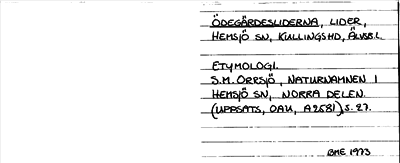 ÖDEGÄRDESLIDERNA, LIDER,
HEMSJÖ SN, KULLINGSHD, ÄLVSB.L.
ETYMOLOGI.
S.M. ORRSJÖ, NATURNAMNEN I
HEMSJÖ SN, NORRA DELEN.
(UPPSATS, OAU, A2581), S. 27.
BME 1973